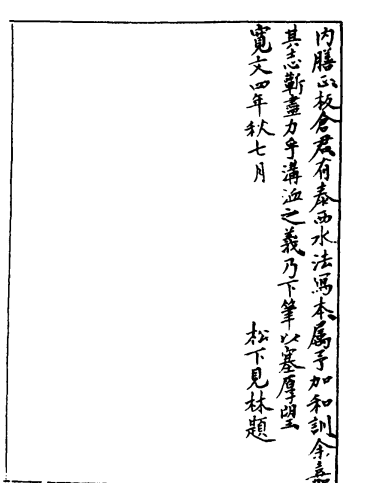 内膳正板倉君有泰西水法寫本属予加和訓余嘉
其志蘄盡力乎溝洫之義乃下筆以塞厚望
寛文四年秋七月 松下見林題